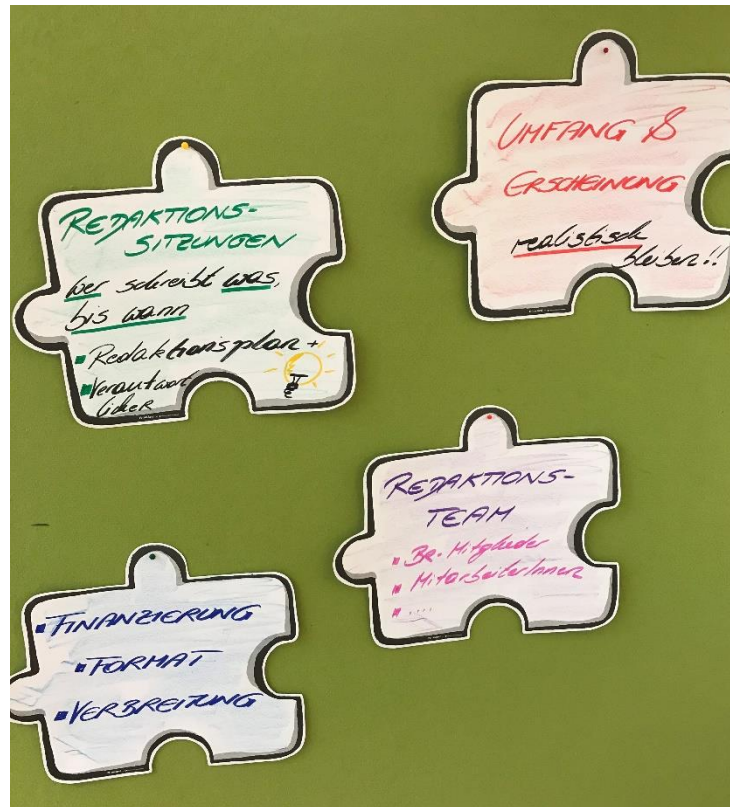 REDAKTIONS-
SITZUNGEN
wer schreibt was,
bis wann
▪ Redaktionsplan +
▪ Verantwort
licher
UMFANG &
ERSCHEINUNG
realistisch
bleiben!!
REDAKTIONS-
TEAM
▪ BR-Mitglieder
▪ MitarbeiterInnen
▪ ....
▪ FINANZIERUNG
▪ FORMAT
▪ VERBREITUNG